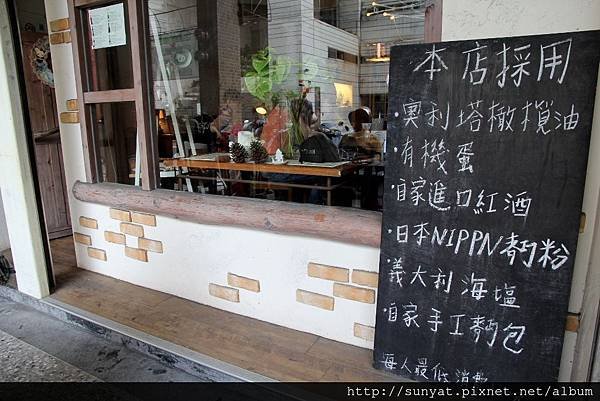 本店採用
·奧利塔橄欖油
·有機蛋
·自家進口紅酒
·日本NIPPN麵粉
·義大利海塩
·自家手工麵包
每人最低消
http://sunyat.pixnet.net/album